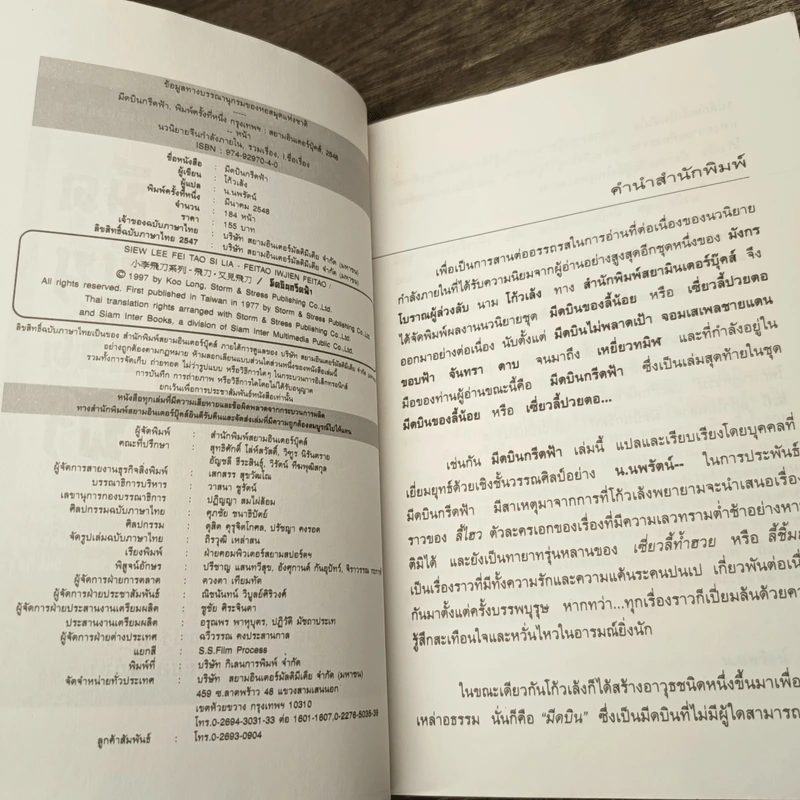 ข้อมูลทางบรรณานุกรมของหอสมุดแห่งชาติ
มีดบินกรีดฟ้า, พิมพ์ครั้งที่หนึ่ง กรุงเทพฯ : สยามอินเตอร์บุ๊คส์, 2548
-- หน้า
นวนิยายจีนกำลังภายใน, รวมเรื่อง, I.ชื่อเรื่อง
ISBN : 974-92970-4-0
ชื่อหนังสือ : มีดบินกรีดฟ้า
ผู้เขียน : โก้วเล้ง
ผู้แปล : น.นพรัตน์
พิมพ์ครั้งที่หนึ่ง : มีนาคม 2548
จำนวน : 184 หน้า
ราคา : 155 บาท
เจ้าของฉบับภาษาไทย : บริษัท สยามอินเตอร์มัลติมีเดีย จำกัด (มหาชน)
ลิขสิทธิ์ฉบับภาษาไทย 2547 : บริษัท สยามอินเตอร์มัลติมีเดีย จำกัด (มหาชน)
SIEW LEE FEI TAO SI LIA - FEITAO IWJIEN FEITAO /
小李飛刀系列 - 飛刀 - 又見飛刀 / มีดบินกรีดฟ้า
© 1997 by Koo Long, Storm & Stress Publishing Co.,Ltd.
All rights reserved. First published in Taiwan in 1977 by Storm & Stress Publishing Co.,Ltd.
Thai translation rights arranged with Storm & Stress Publishing Co.,Ltd.
and Siam Inter Books, a division of Siam Inter Multimedia Public Co.,Ltd.
ลิขสิทธิ์ฉบับภาษาไทยเป็นของ สำนักพิมพ์สยามอินเตอร์บุ๊คส์ ภายใต้การดูแลของ บริษัท สยามอินเตอร์มัลติมีเดีย จำกัด
อย่างถูกต้องตามกฎหมาย ห้ามลอกเลียนแบบส่วนใดส่วนหนึ่งของหนังสือเล่มนี้
รวมทั้งการจัดเก็บ ถ่ายทอด ไม่ว่ารูปแบบ หรือวิธีการใดๆ ในกระบวนการอิเล็กทรอนิกส์
การบันทึก การถ่ายภาพ หรือวิธีการใดโดยไม่ได้รับอนุญาต
ยกเว้นเพื่อการประชาสัมพันธ์หนังสือเท่านั้น
หนังสือทุกเล่มที่มีความเสียหายและข้อผิดพลาดจากกระบวนการผลิต
ทางสำนักพิมพ์สยามอินเตอร์บุ๊คส์ยินดีรับคืนและจัดส่งเล่มที่มีความถูกต้องสมบูรณ์ไปให้แทน
ผู้จัดพิมพ์ : สำนักพิมพ์สยามอินเตอร์บุ๊คส์
คณะที่ปรึกษา : สุทธิศักดิ์ โล่ห์สวัสดิ์, วิฑูร นิรันตราย
อัญชลี ธีระสินธุ์, วิรัตน์ ทีฆพุฒิสกุล
ผู้จัดการสายงานธุรกิจสิ่งพิมพ์ : เสกสรร สุขวัฒโน
บรรณาธิการบริหาร : วาสนา ชูรัตน์
เลขานุการกองบรรณาธิการ : ปฏิญญา สมใฝ่ล้อม
ศิลปกรรมฉบับภาษาไทย : ศุภชัย ธนาธิปัตย์
ศิลปกรรม : ดุสิต คุรุจิตโกศล, ปรัชญา คงรอด
จัดรูปเล่มฉบับภาษาไทย : ถิรวุฒิ เหล่าสน
เรียงพิมพ์ : ฝ่ายคอมพิวเตอร์สยามสปอร์ตฯ
พิสูจน์อักษร : ปรีชาญ แสนทวีสุข, อังศุกานต์ กันธุปัทว์, จิราวรรณ
ผู้จัดการฝ่ายการตลาด : ดวงตา เทียมทัด
ผู้จัดการฝ่ายประชาสัมพันธ์ : ณิชนันทน์ วิบูลย์ศิริวงศ์
ผู้จัดการฝ่ายประสานงานเตรียมผลิต : ชูชัย ศิระจินดา
ประสานงานเตรียมผลิต : อรุณพร พาหุบุตร, ปฏิวัติ มัชถาประเท
ผู้จัดการฝ่ายต่างประเทศ : ฉวีวรรณ คงประสานกาล
แยกสี : S.S.Film Process
พิมพ์ที่ : บริษัท กิเลนการพิมพ์ จำกัด
จัดจำหน่ายทั่วประเทศ : บริษัท สยามอินเตอร์มัลติมีเดีย จำกัด (มหาชน)
459 ซ.ลาดพร้าว 48 แขวงสามเสนนอก
เขตห้วยขวาง กรุงเทพฯ 10310
โทร.0-2694-3031-33 ต่อ 1601-1607,0-2276-5035-39
ลูกค้าสัมพันธ์ : โทร.0-2693-0904
คำนำสำนักพิมพ์
เพื่อเป็นการสานต่ออรรถรสในการอ่านที่ต่อเนื่องของนวนิยาย
กำลังภายในที่ได้รับความนิยมจากผู้อ่านอย่างสูงสุดอีกชุดหนึ่งของ มังกร
โบราณผู้ล่วงลับ นาม โก้วเล้ง ทาง สำนักพิมพ์สยามอินเตอร์บุ๊คส์ จึง
ได้จัดพิมพ์ผลงานนวนิยายชุด มีดบินของลี้น้อย หรือ เซี่ยวลี้ปวยตอ
ออกมาอย่างต่อเนื่อง นับตั้งแต่ มีดบินไม่พลาดเป้า จอมเสเพลชายแดน
ขอบฟ้า จันทรา ดาบ จนมาถึง เหยี่ยวทมิฬ และที่กำลังอยู่ใน
มือของท่านผู้อ่านขณะนี้คือ มีดบินกรีดฟ้า ซึ่งเป็นเล่มสุดท้ายในชุด
มีดบินของลี้น้อย หรือ เซี่ยวลี้ปวยตอ...
เช่นกัน มีดบินกรีดฟ้า เล่มนี้ แปลและเรียบเรียงโดยบุคคลที่
เยี่ยมยุทธ์ด้วยเชิงชั้นวรรณศิลป์อย่าง น.นพรัตน์-- ในการประพันธ์
มีดบินกรีดฟ้า มีสาเหตุมาจากการที่โก้วเล้งพยายามจะนำเสนอเรื่อง
ราวของ ลี้ไฮว ตัวละครเอกของเรื่องที่มีความเลวทรามต่ำช้าอย่างหา
ติมิได้ และยังเป็นทายาทรุ่นหลานของ เซี่ยวลี้ทำฮวย หรือ ลี้ชิ้ม
เป็นเรื่องราวที่มีทั้งความรักและความแค้นระคนปนเป เกี่ยวพันต่อเนื่
กันมาตั้งแต่ครั้งบรรพบุรุษ หากทว่า...ทุกเรื่องราวก็เปี่ยมล้นด้วยคว
รู้สึกสะเทือนใจและหวั่นไหวในอารมณ์ยิ่งนัก
ในขณะเดียวกันโก้วเล้งก็ได้สร้างอาวุธชนิดหนึ่งขึ้นมาเพื่อ
เหล่าอธรรม นั่นก็คือ "มีดบิน" ซึ่งเป็นมีดบินที่ไม่มีผู้ใดสามารถ